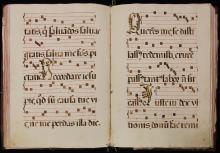 tatis, q̃ saluãdos saluas
gratis, salua me fons pi
etatis. Recordare iesu
pie, qd̃ sum causa tue vi
e, ne me perdas illa die.
Querens me se disti
lassus, redemisti, cruce
passus, tantus labor nõ sit
cassus. Iuste iudex vl
tionis, donũ fac remis